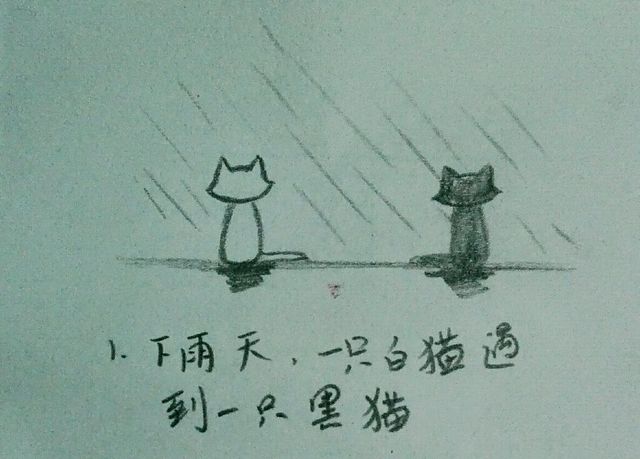 1. 下雨天，一只白猫遇
到一只黑猫